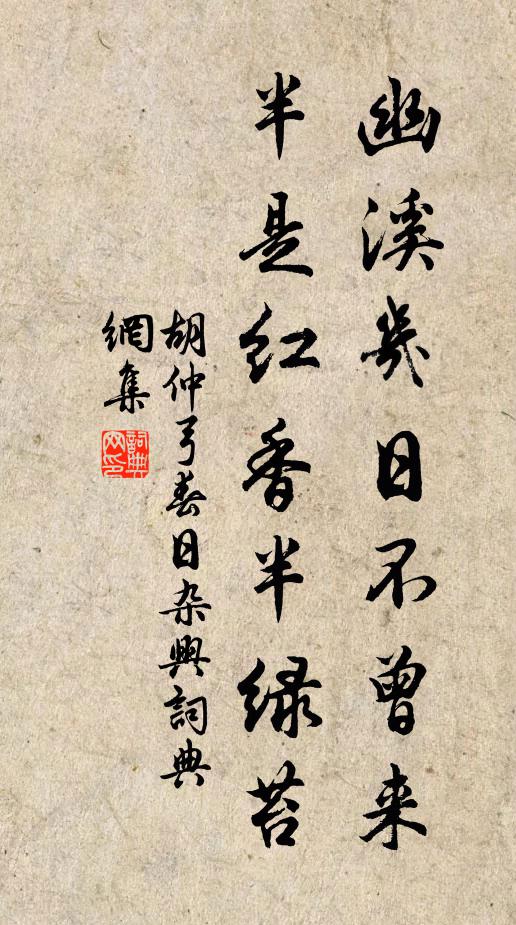 幽溪幾日不曾来
半是红香半緑苔
胡仲弓春日杂興詞典
網集
詞典网印